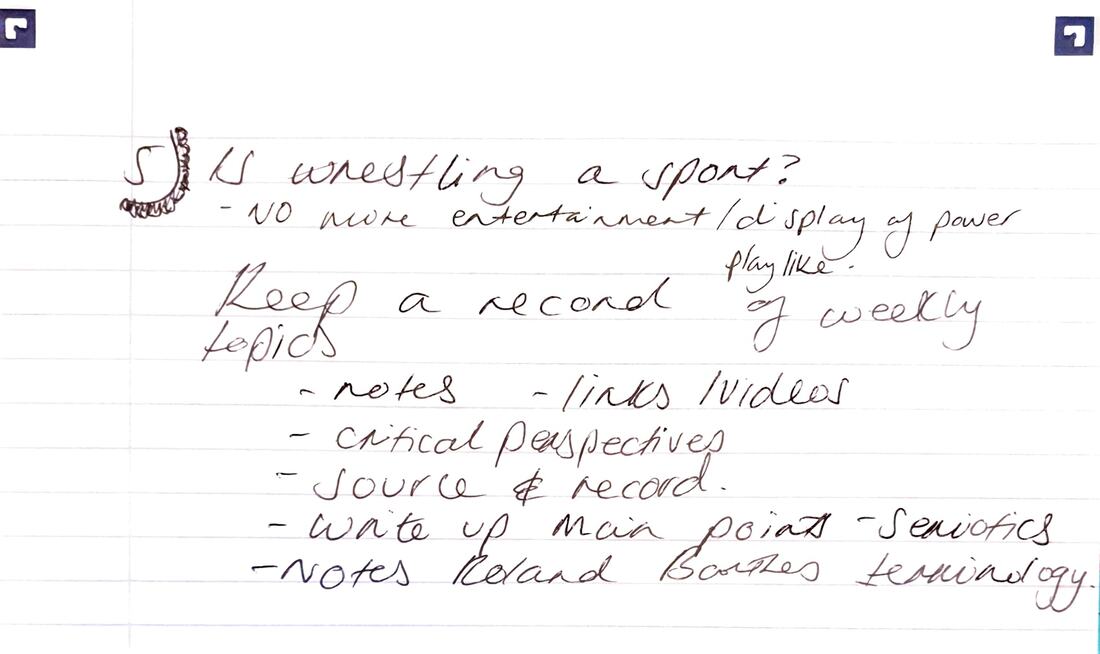 5) Is wrestling a sport?
- No more entertainment/display of power
play like.
Keep a record of weekly
topics
- notes - links /videos
- critical perspectives
- source & record.
- write up main points - Semiotics
- Notes Roland Barthes terminology.